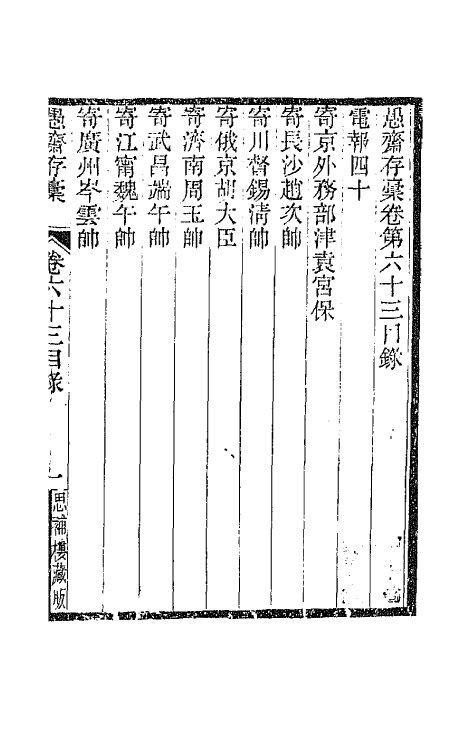 愚齋存稾卷第六十三目錄
電報四十
寄京外務部津袁宮保
寄長沙趙次帥
寄川督錫清帥
寄俄京胡大臣
寄濟南周玉帥
寄武昌端午帥
寄江甯魏午帥
寄廣州岑雲帥
愚齋存稾
卷六十三目錄
一
思補樓藏版